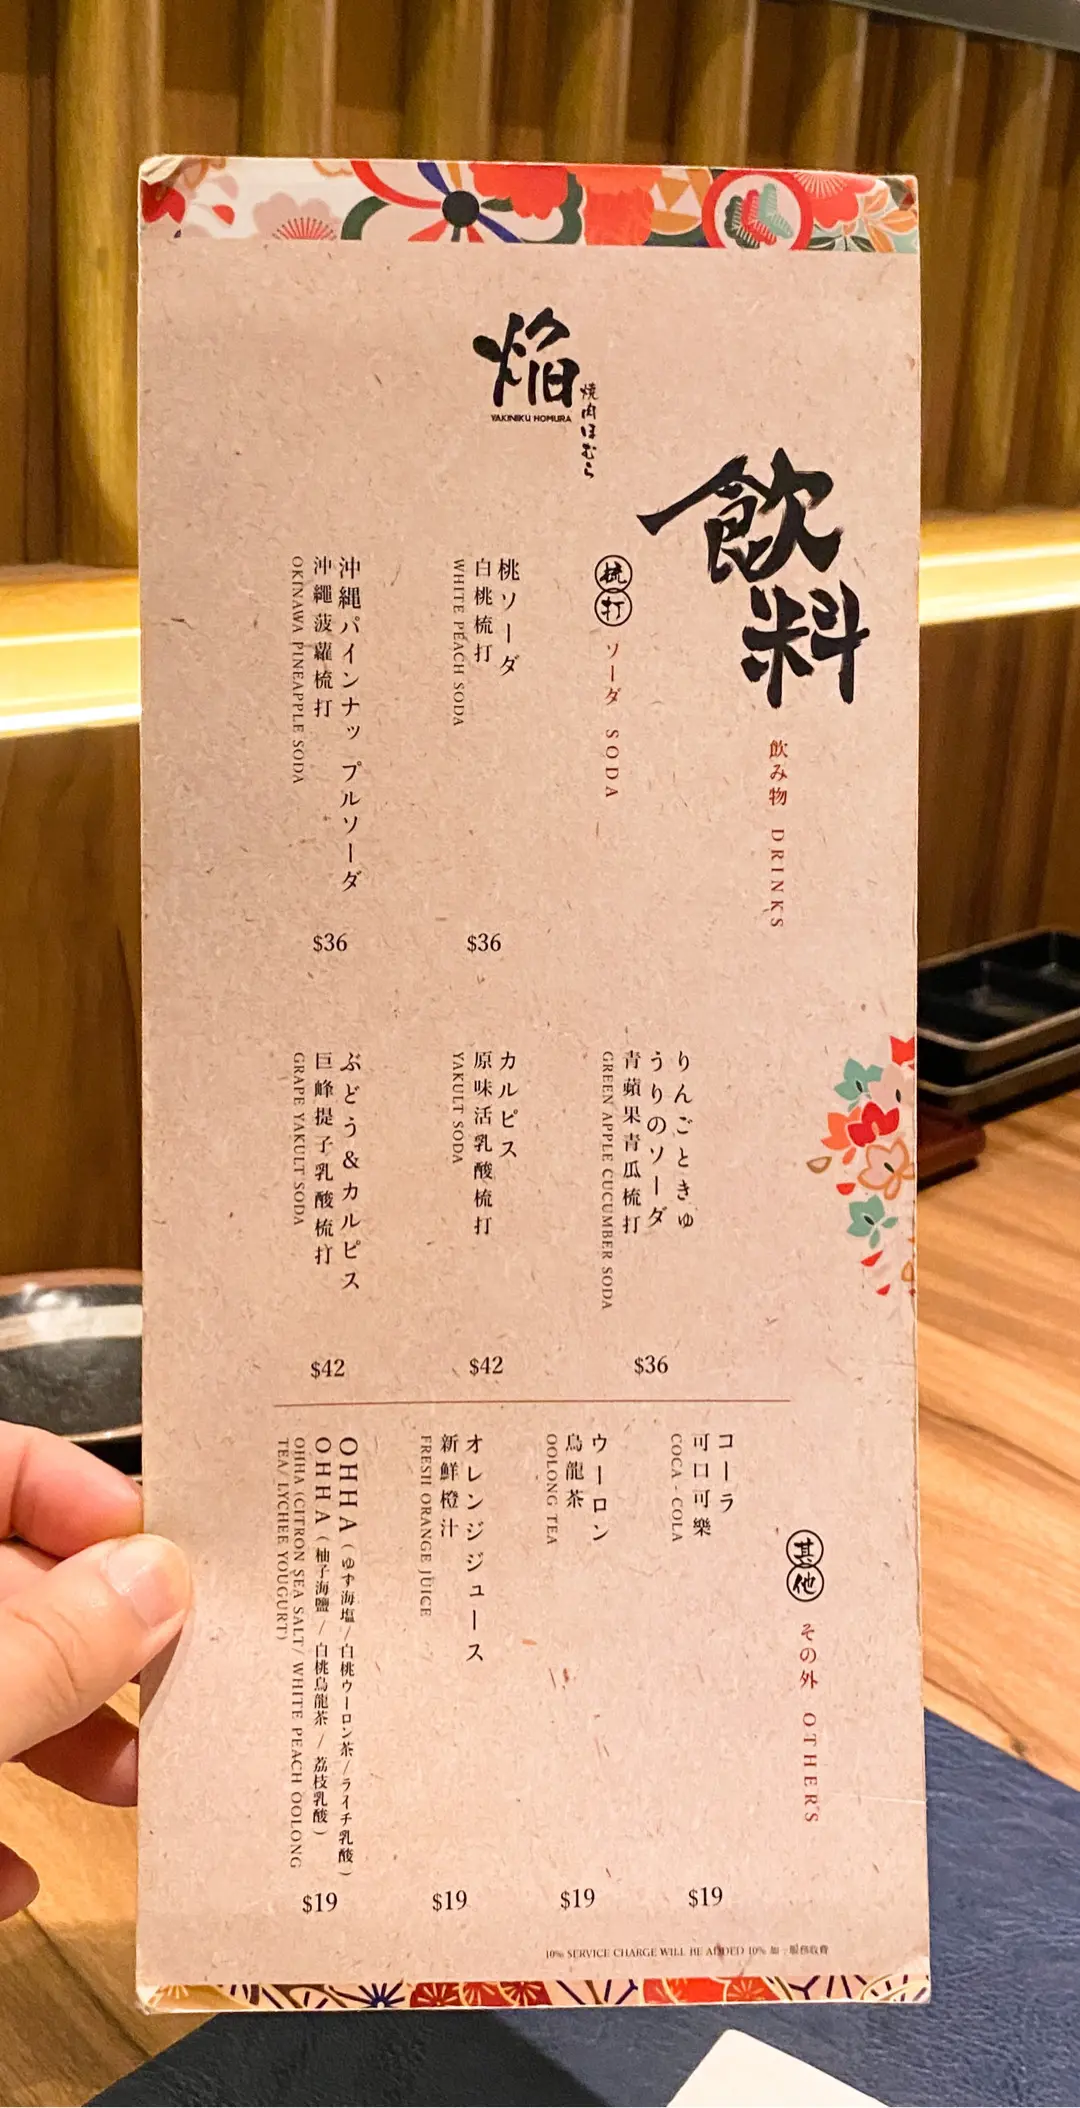 焔
YAKINIKU HOMURA
焼肉ほむら
飲料
飲み物 DRINKS
梳打 ソーダ SODA
桃ソーダ
白桃梳打
WHITE PEACH SODA
$36
沖縄パインナップルソーダ
沖繩菠蘿梳打
OKINAWA PINEAPPLE SODA
$36
りんごときゅ
うりのソーダ
青蘋果青瓜梳打
GREEN APPLE CUCUMBER SODA
$36
カルピス
原味活乳酸梳打
YAKULT SODA
$42
ぶどう&カルピス
巨峰提子乳酸梳打
GRAPE YAKULT SODA
$42
其他 その外 OTHERS
コーラ
可口可樂
COCA - COLA
$19
ウーロン
烏龍茶
OOLONG TEA
$19
オレンジジュース
新鮮橙汁
FRESH ORANGE JUICE
$19
OHHA (ゆず海塩/白桃ウーロン茶/ライチ乳酸)
OHHA (柚子海鹽 / 白桃烏龍茶 / 荔枝乳酸)
OHHA (CITRON SEA SALT/ WHITE PEACH OOLONG
TEA/ LYCHEE YOUGURT)
$19
10% SERVICE CHARGE WILL BE ADDED 10% 加一服務收費